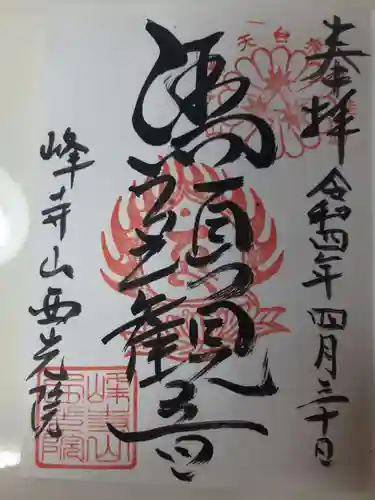 奉拝
令和四年四月三十日
馬頭観音
峰寺山西光院
天台宗
峰寺山
西光院